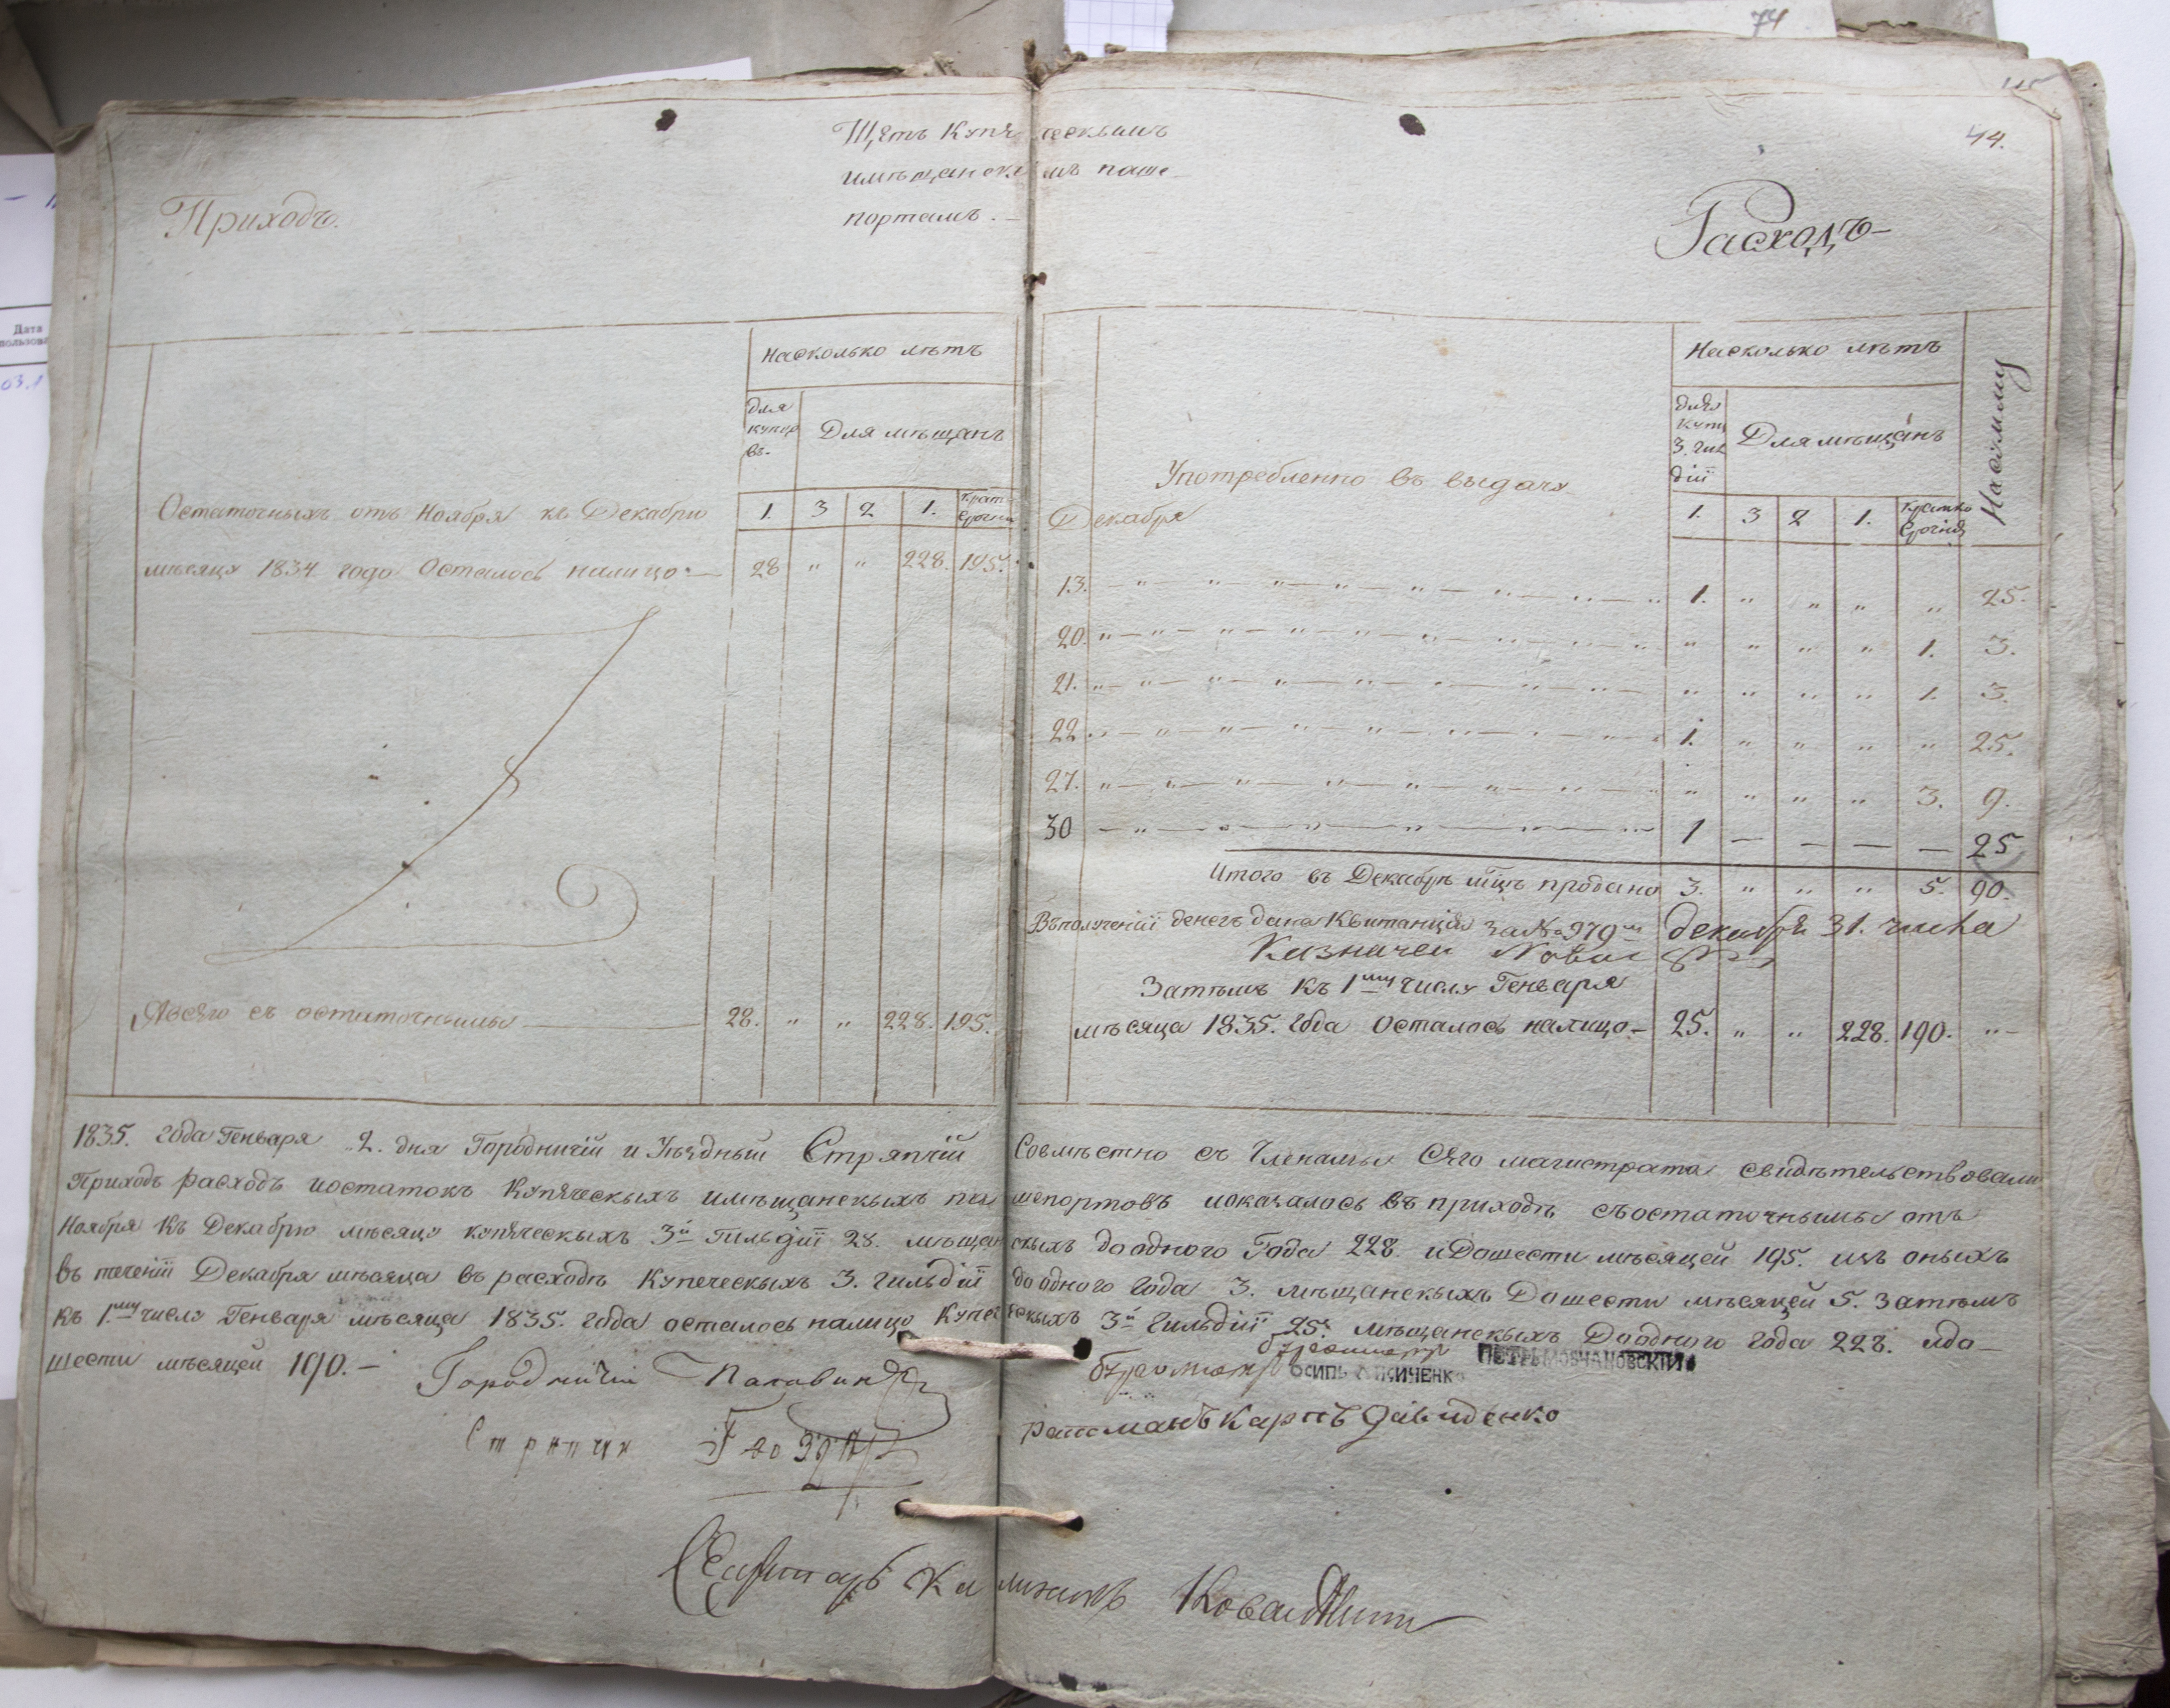 74
115
44.
Щетъ Купеческимъ
имещанскимъ паше
портамъ.
Приходъ.
Расходъ
Дата
03.1
насколько летъ
для купцовъ
Для мещанъ
1. 3 2 1. кратко срочны
Остаточныхъ отъ Ноября къ Декабрю
месяцу 1834 года Осталось налицо — 28 " " 228. 195.
Явсего съ остаточными — 28. " " 228. 195.
Насколько летъ
для купц 3. гил дiи
Для мещанъ
На сумму
1. 3 2 1. кратко срочнц
Употребленно въ выдачу
Декабря
13. 1. " " " " 25.
20. " " " " 1. 3.
21. " " " " 1. 3.
22. 1. " " " " 25.
27. " " " " 3. 9.
30 1 — — — — 25
Итого въ Декабре мцъ продано 3. " " " 5. 90.
Вполученiи денегъ дана Квитанцiя за № 979 декабря 31. числа
Казначеи
Затемъ къ 1му числу Генваря
месяца 1835. года Осталось налицо — 25. " " 228. 190. "
1835. года Генваря 2. дня Городничiй и Уездный Стряпчiй Совместно съ Членамы Сего магистрата свидетельствовали
Приходъ расходъ иостатокъ Купеческыхъ имещанскыхъ пашепортовъ иоказалось въ приходе съостаточнымы отъ
Ноября Къ Декабрю месяцу купеческыхъ 3й Гильдiи 28. мещанскыхъ доодного Года 228. иДошести месяцей 195. изъ оныхъ
въ теченiи Декабря месяца въ расходе Купеческыхъ 3. гильдiи доодного года 3. мещанскыхъ Дошести месяцей 5. Затемъ
къ 1му числу Генваря месяца 1835. года осталось налицо Купеческыхъ 3й Гильдiи 25. мещанскыхъ Доодного года 228. идо
шести месяцей 190. —
Городничiй
бургомистръ ПЕТРЪ МОВЧАНОВСКIЙ
бургомистръ ОСИПЪ
Стряпчи
ратманъ Карпъ Давиденко
Секретарь Калиникъ